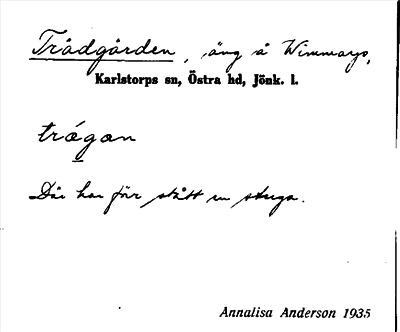 Trädgården, äng å Wimmarp,
Karlstorps sn, Östra hd, Jönk. l.
trágan
Där har förr stått en stuga.
Annalisa Anderson 1935